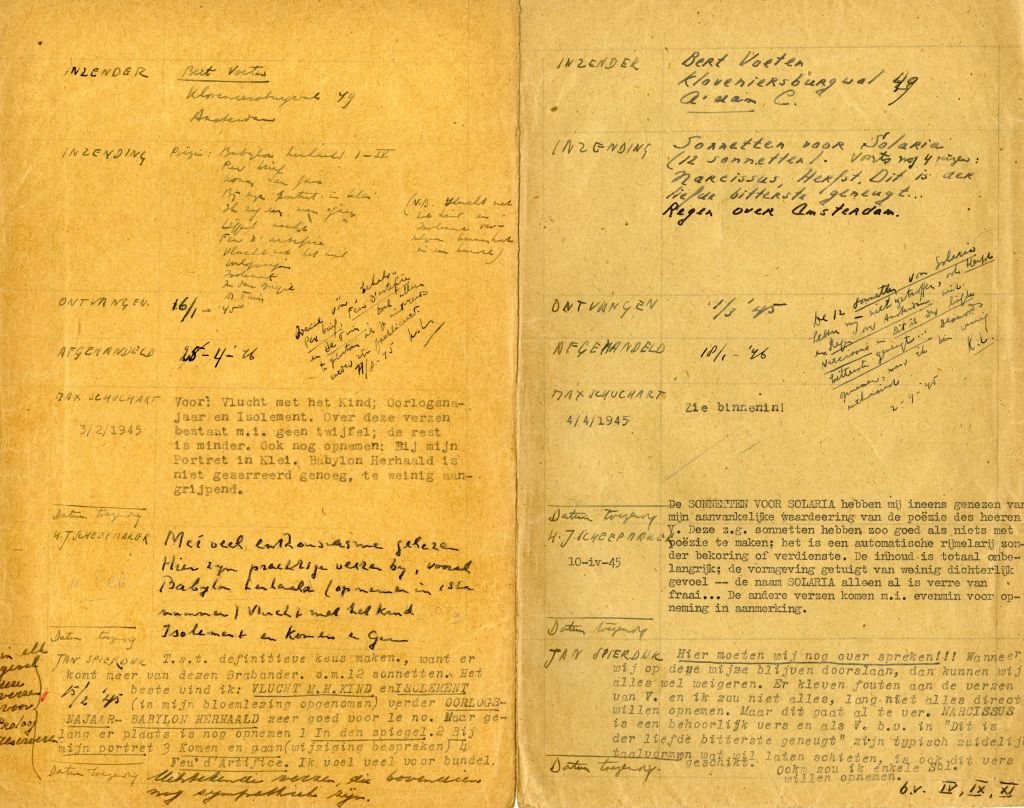 INZENDER Bert Voeten
Kloveniersburgwal 49
Amsterdam
INZENDING Poëzie: Babylon herhaald I-IV
Per brief
Komen en gaan
Bij mijn portret in klei
Feu d'artifice
Vlucht met het kind
Oorlogsnajaar
Isolement
In den spiegel
De Tuin
(N.B. Vlucht met
het kind en
Isolement
ONTVANGEN 16/1 - '45
AFGEHANDELD 25-4-'46
Per brief, Feu d'artifice
en de Tuin
11/8-'45
MAX SCHUCHART Voor: Vlucht met het Kind; Oorlogsna-
jaar en Isolement. Over deze verzen
3/2/1945 bestaat m.i. geen twijfel; de rest
is minder. Ook nog opnemen: Bij mijn
Portret in Klei. Babylon Herhaald is
niet geserreerd genoeg, te weinig aan-
grijpend.
Datum toezending
H.J. SCHEEPMAKER Met veel enthousiasme gelezen
Hier zijn prachtige verzen bij, vooral
Babylon herhaald (opnemen in 1ste
nummer) Vlucht met het kind
Isolement en Komen en Gaan
Datum toezending
JAN SPIERDIJK T.z.t. definitieve keus maken., want er
komt meer van dezen Brabander. o.m.12 sonnetten. Het
15/2 '45 beste vind ik: VLUCHT M.H.KIND enISOLEMENT
(in mijn bloemlezing opgenomen) verder OORLOGS-
NAJAAR- BABYLON HERHAALD zeer goed voor 1e no. Maar ge-
lang er plaats is nog opnemen 1 In den spiegel.2 Bij
mijn portret 3 Komen en gaan(wijziging bespreken) 4
Feu d'Artifice. Ik voel veel voor bundel.
Datum toezending Uitstekende verzen, die bovendien
nog sympathiek zijn.
in elk
geval
deze
verzen
voor
reserveren
INZENDER Bert Voeten
Kloveniersburgwal 49
A'dam C.
INZENDING Sonnetten voor Solaria
(12 sonnetten). Voorts nog 4 verzen:
Narcissus, Herfst, Dit is der
liefde bitterste geneugt...
Regen over Amsterdam.
ONTVANGEN 1/3 '45
AFGEHANDELD 18/1-'46
De 12 sonnetten van Solaria
hebben mij niet getroffen; ook Herfst
en Regen over Amsterdam niet.
Narcissus en Dit is der liefde
bitterste geneugt...
opnemen, maar ik ben weinig
enthousiast.
2-9-'45
MAX SCHUCHART Zie binnenin!
4/4/1945
Datum toezending
H.J. SCHEEPMAKER
10-iv-45
De SONNETTEN VOOR SOLARIA hebben mij ineens genezen van
mijn aanvankelijke waardeering van de poëzie des heeren
V. Deze z.g. sonnetten hebben zoo goed als niets met
poëzie te maken; het is een automatische rijmelarij zon-
der bekoring of verdienste. De inhoud is totaal onbe-
langrijk; de vormgeving getuigt van weinig dichterlijk
gevoel -- de naam SOLARIA alleen al is verre van
fraai... De andere verzen komen m.i. evenmin voor op-
neming in aanmerking.
Datum toezending
JAN SPIERDIJK Hier moeten wij nog over spreken!!! Wanneer
wij op deze wijze blijven doorslaan, dan kunnen wij
alles wel weigeren. Er kleven fouten aan de verzen
van V. en ik zou niet alles, lang niet alles direct
willen opnemen. Maar dit gaat al te ver. NARCISSUS
is een behoorlijk vers en als V. b.v. in "Dit is
der liefde bitterste geneugt" zijn typisch zuidelij
taalvormen wat wil laten schieten, is ook dit vers
Datum toezending. geschikt. Ookm zou ik enkele Sol.
willen opnemen.
b.v. IV, IX, XI